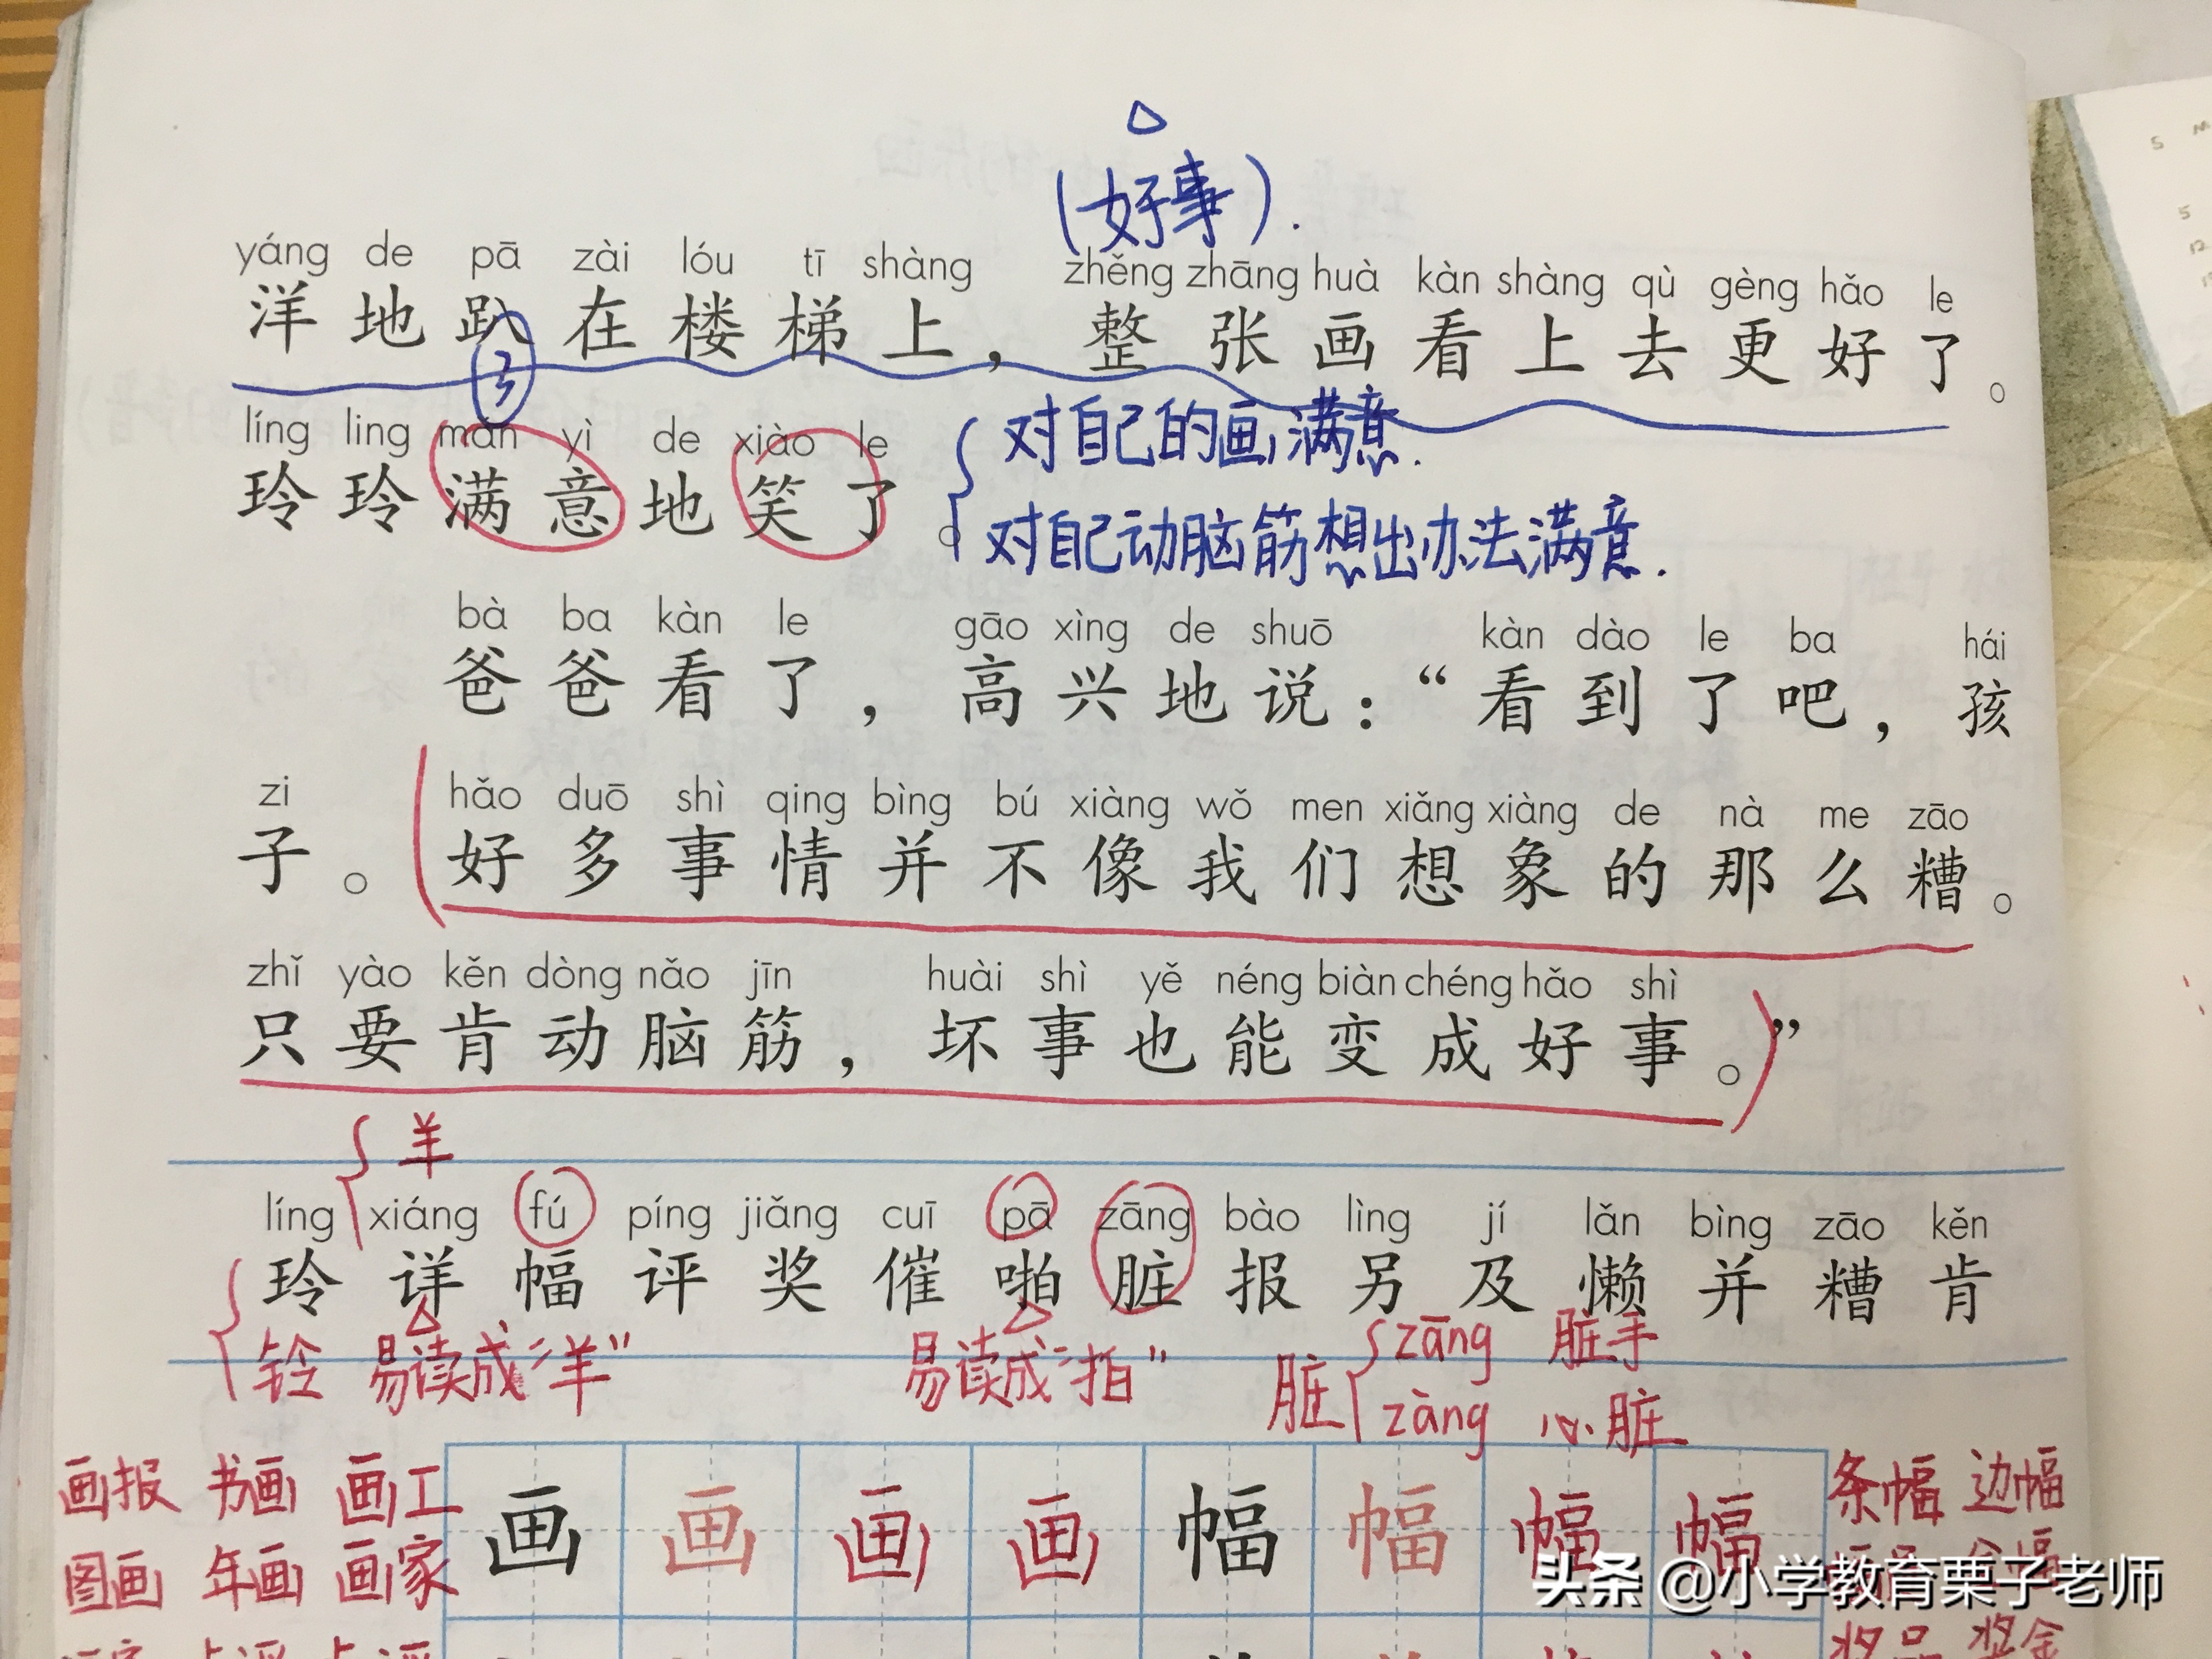 (好事).
yáng de pā zài lóu tī shàng zhěng zhāng huà kàn shàng qù gèng hǎo le
洋地趴在楼梯上，整张画看上去更好了。
3
líng ling mǎn yì de xiào le
玲玲满意地笑了。
对自己的画满意.
对自己动脑筋想出办法满意.
bà ba kàn le gāo xìng de shuō kàn dào le ba hái
爸爸看了，高兴地说：“看到了吧，孩
zi hǎo duō shì qing bìng bú xiàng wǒ men xiǎng xiàng de nà me zāo
子。好多事情并不像我们想象的那么糟。
zhǐ yào kěn dòng nǎo jīn huài shì yě néng biàn chéng hǎo shì
只要肯动脑筋，坏事也能变成好事。”
羊
líng xiáng fú píng jiǎng cuī pā zāng bào lìng jí lǎn bìng zāo kěn
玲 详 幅 评 奖 催 啪 脏 报 另 及 懒 并 糟 肯
铃 易读成“羊” 易读成“拍” 脏 zāng 脏手
zàng 心脏
画报 书画 画工 画 画 画 画 幅 幅 幅 幅 条幅 边幅
图画 年画 画家
头条 @小学教育栗子老师
奖品 奖金